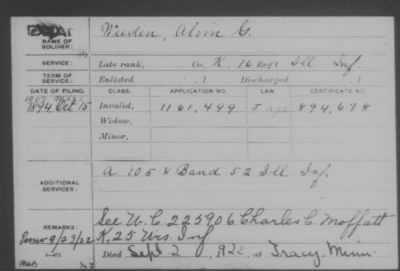 Weeden, Alvin G.
NAME OF SOLDIER:
SERVICE: Late rank, Co. K, 16 Reg't Ill Inf.
TERM OF SERVICE: Enlisted , 1 Discharged , 1
DATE OF FILING. CLASS. APPLICATION NO. LAW. CERTIFICATE NO.
1894, Oct 15 Invalid, 1161,499 894,678
Widow,
Minor,
ADDITIONAL SERVICES: A 105 & Band 52 Ill Inf.
REMARKS: See W.C. 225906 Charles C. Moffatt
9/23/22 K, 25 Wis. Inf
Died Sept 2, 1922, at Tracy Minn.